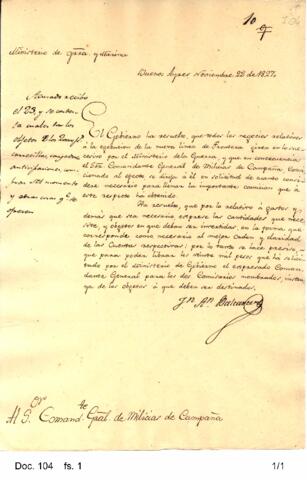 10
Ministerio de Grra. y Marina
Buenos Ayres Noviembre 22 de 1827.
Avisado recivo
el 23, y se contex
El Gobierno ha resuelto, que todos los negocios relativos
à la egecucion de la nueva linea de Fronteras giren en lo su-
cesivo por el Ministerio de la Guerra, y que en consecuencia
el Sor. Comandante General de Milicias de Campaña Comi-
sionado al efecto se dirija à él en solicitud de cuanto consi-
dere necesario para llenar la importante comision que à
este respecto ha obtenido.
Ha resuelto, que por lo relativo à gastos y
demás que sea necesario exprese las cantidades que nece-
site, y objetos en que deban ser invertidas, en la forma que
corresponde como necesario al mejor orden y claridad
de las Cuentas respectivas; por lo tanto se hace preciso,
que para poder librar los veinte mil pesos que ha solici-
tado por el Ministerio de Gobierno el expresado Coman-
dante General para los dos Comisarios nombrados, instru-
ya de los objetos à que deben ser destinados.
Jn. Rn. Balcarce
Or.
Al S. Comandte. Gral. de Milicias de Campaña
Doc. 104 fs. 1
1/1